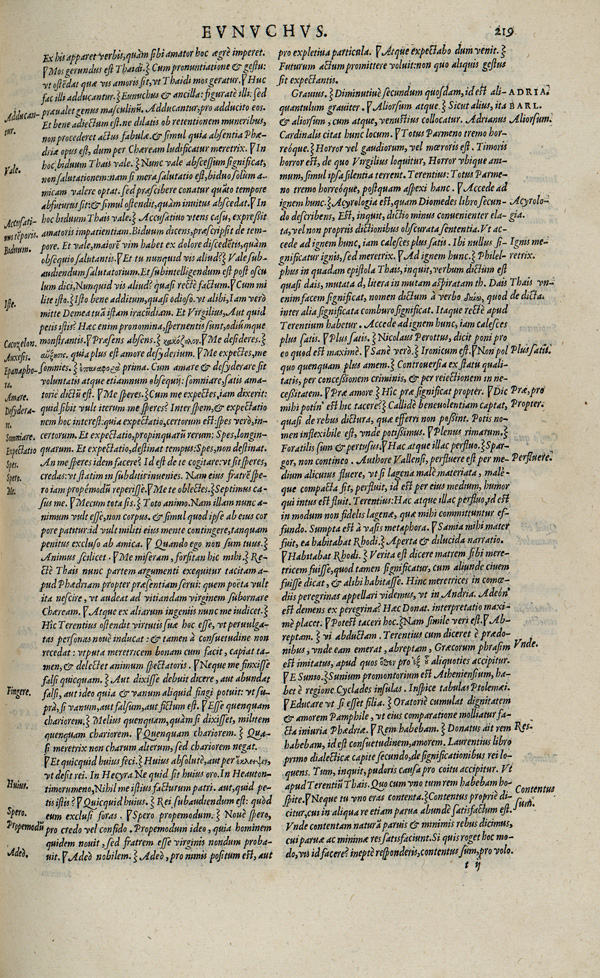 EVNVCHVS.
219
Ex his apparet verbis, quàm sibi amator hoc ægrè imperet.
Mos gerundus est Thaidi. Cum pronuntiatione & gestu:
vt ostēdat quæ vis amoris sit, vt Thaidi mos geratur. Huc
fac illi adducantur. Eunuchus & ancilla: figuratè illi: sed
præualet genus masculinū. Adducantur, pro adducito eos.
Et bene adiectum est: ne dilatis ob retentionem muneribus,
non procederet actus fabulæ: & simul quia absentia Phæ-
driæ opus est, dum per Chæream ludificatur meretrix. In
hoc biduum Thais vale. Nunc vale abscessum significat,
non salutationem: nam si mera salutatio est, biduo solùm a-
micam valere optat. sed præscribere conatur quāto tempore
abfuturus sit: & simul ostendit, quàm inuitus abscedat. In
hoc biduum Thais vale. Accusatiuo vtens casu, expressit
amatoris impatientiam. Biduum dicens, præscripsit de tem-
pore. Et vale, maiorē vim habet ex dolore discedētis, quàm
obsequio salutantis. Et tu nunquid vis aliud? Vale sub-
audiendum salutatorium. Et subintelligendum est post oscu
lum dici, Nunquid vis aliud? quasi rectè factum. Cum mi
lite isto. Isto bene additum, quasi odioso. vt alibi, Iam verò
mitte Demea tuā istam iracūdiam. Et Virgilius, Aut quid
petis istis? Hæc enim pronomina, spernentis sunt, odiūmque
monstrantis. Præsens absens. Me desideres.
quia plus est amore desyderium. Me expectes, me
somnies. prima. Cum amare & desyderare sit
voluntatis atque etiamnum obsequij: somniare, satis ama-
toriè dictū est. Me speres. Cum me expectes, iam dixerit:
quid sibi vult iterum me speres? Inter spem, & expectatio
nem hoc interest: quia expectatio, certorum est: spes verò, in-
certorum. Et expectatio, propinquarū rerum: Spes, longin-
quarum. Et expectatio, destinat tempus: Spes, non destinat.
An me speres idem facere? Id est de te cogitare: vt sit speres,
credas: vt statim in subditis inuenies. Nam eius fratrē spe-
ro iam propēmodū reperisse. Me te oblectes. Septimus ca-
sus me. Mecum tota sis. Toto animo. Nam illam nunc a-
nimum vult esse, non corpus. & simul quod ipse ab eius cor
pore patitur: id vult militi eius mente contingere, tanquam
penitus excluso ab amica. Quando ego non sum tuus.
Animus scilicet. Me miseram, forsitan hic mihi. Re-
ctè Thais nunc partem argumenti exequitur tacitam a-
pud Phædriam propter præsentiam serui: quem poeta vult
ita nescire, vt audeat ad vitiandam virginem subornare
Chæream. Atque ex aliarum ingeniis nunc me iudicet.
Hic Terentius ostendit virtutis suæ hoc esse, vt peruulga-
tas personas nouè inducat: & tamen à consuetudine non
recedat: vtputa meretricem bonam cum facit, capiat ta-
men, & delectet animum spectatoris. Neque me finxisse
falsi quicquam. Aut dixisse debuit dicere, aut abundat
falsi, aut ideo quia & vanum aliquid fingi potuit: vt su-
prà, si vanum, aut falsum, aut fictum est. Esse quenquam
chariorem. Melius quenquam, quàm si dixisset, militem
quenquam chariorem. Quenquam chariorem. Qua-
si meretrix non charum alterum, sed chariorem negat.
Et quicquid huius feci. Huius absolutè, aut per
vt desit rei. In Hecyra Ne quid sit huius oro. In Heauton-
timorumeno, Nihil me istius facturum patri. aut, quid pe-
tis istis? Quicquid huius. Rei subaudiendum est: quòd
eum exclusi foras. Spero propemodum. Nouè spero,
pro credo vel confido. Propemodum ideo, quia hominem
quidem nouit, sed fratrem esse virginis nondum proba-
uit. Adeò nobilem. Adeò, pro nimis positum est, aut
Adducan-
tur.
Vale.
Accusati-
uus tēporis.
Biduum.
Iste.
Cacozelon.
Auxesis.
Epanapho-
ra.
Amare.
Desydera-
re.
Somniare.
Expectatio
Spes.
Spero.
Me.
Fingere.
Huius.
Spero.
Propemodū
Adeò.
pro expletiua particula. Atque expectabo dum venit.
Futurum actum promittere voluit: non quo aliquis gestus
sit expectantis.
Grauius. Diminutiuè secundum quosdam, id est ali-
quantulum grauiter. Aliorsum atque. Sicut alius, ita
& aliorsum, cum atque, venustius collocatur. Adrianus
Cardinalis citat hunc locum. Totus Parmeno tremo hor-
reóque. Horror vel gaudiorum, vel mœroris est. Timoris
horror est, de quo Virgilius loquitur, Horror vbique ani-
mum, simul ipsa silentia terrent. Terentius: Totus Parme-
no tremo horreóque, postquam aspexi hanc. Accede ad
ignem hunc. Acyrologia est, quam Diomedes libro secun-
do describens, Est, inquit, dictio minus conuenienter ela-
ta, vel non propriis dictionibus obscurata sententia. Vt ac-
cede ad ignem hunc, iam calesces plus satis. Ibi nullus si-
gnificatur ignis, sed meretrix. Ad ignem hunc. Philel-
phus in quadam epistola Thais, inquit, verbum dictum est
quasi dais, mutata d, litera in mutam aspiratam th. Dais
enim facem significat, nomen dictum à verbo δαίω, quod
inter alia significata comburo significat. Itaque rectè apud
Terentium habetur. Accede ad ignem hunc, iam calesces
plus satis. Plus satis. Nicolaus Perottus, dicit poni pro
eo quod est maximè. Sanè verò. Ironicum est. Non pol
quo quenquam plus amem. Controuersia ex statu quali-
tatis, per concessionem criminis, & per reiectionem in ne-
cessitatem. Præ amore Hic præ significat propter. Dic
mihi potin' est hic tacere? Callidè beneuolentiam captat,
quasi de rebus dictura, quæ efferri non possint. Potis no-
men inflexibile est, vnde potissimus. Plenus rimarum.
Foratilis sum & pertusus. Hac atque illac perfluo. Spar-
gor, non contineo. Authore Vallensi, perfluere est per me-
dium alicuius fluere, vt si lagena malè materiata, malé-
que compacta sit, perfluit, id est per eius medium, humor
qui intus est fluit. Terentius: Hac atque illac perfluo, id est
in modum non fidelis lagenæ, quæ mihi committuntur ef-
fundo. Sumpta est à vasis metaphora. Samia mihi mater
fuit, ea habitabat Rhodi. Aperta & dilucida narratio.
Habitabat Rhodi. Verita est dicere matrem sibi mere-
tricem fuisse, quod tamen significatur, cum aliunde ciuem
fuisse dicat, & alibi habitasse. Hinc meretrices in comœ-
diis peregrinas appellari videmus, vt in Andria. Adeón'
est demens ex peregrina? Hæc Donat. interpretatio maxi-
mè placet. Potést taceri hoc. Nam simile veri est. Ab-
reptam. vi abductam. Terentius cum diceret è prædo-
nibus, vnde eam emerat, abreptam, Græcorum phrasim
est imitatus, apud quos pro aliquoties accipitur.
E Sunio. Sunium promontorium est Atheniensium, ha-
bet è regione Cyclades insulas. Inspice tabulas Ptolemæi.
Educare vt si esset filia. Oratoriè cumulat dignitatem
& amorem Pamphilæ, vt eius comparatione molliatur fa-
cta iniuria Phædriæ. Rem habebam. Donatus ait rem
habebam, id est consuetudinem, amorem. Laurentius libro
primo dialecticæ capite secundo, de significationibus rei lo-
quens. Tum, inquit, pudoris causa pro coitu accipitur. Vt
apud Terentiū Thais. Quo cum vno tum rem habebam ho-
spite. Neque tu vno eras contenta. Contentus propriè di-
citur, cui in aliqua re etiam parua abundè satisfactum est.
Vnde contentam naturā paruis & minimis rebus dicimus,
cui paruæ ac minimæ res satisfaciunt. Si quis roget hoc mo-
do, vis id facere? ineptè responderis, contentus sum, pro volo.
ADRIA.
BARL.
Aliorsum.
Acyrolo-
gia.
Ignis me-
retrix.
Thais vn-
de dicta.
Plus satis.
Præ, pro
Propter.
Perfluere.
Vnde.
Res.
Contentus
sum.
t ij